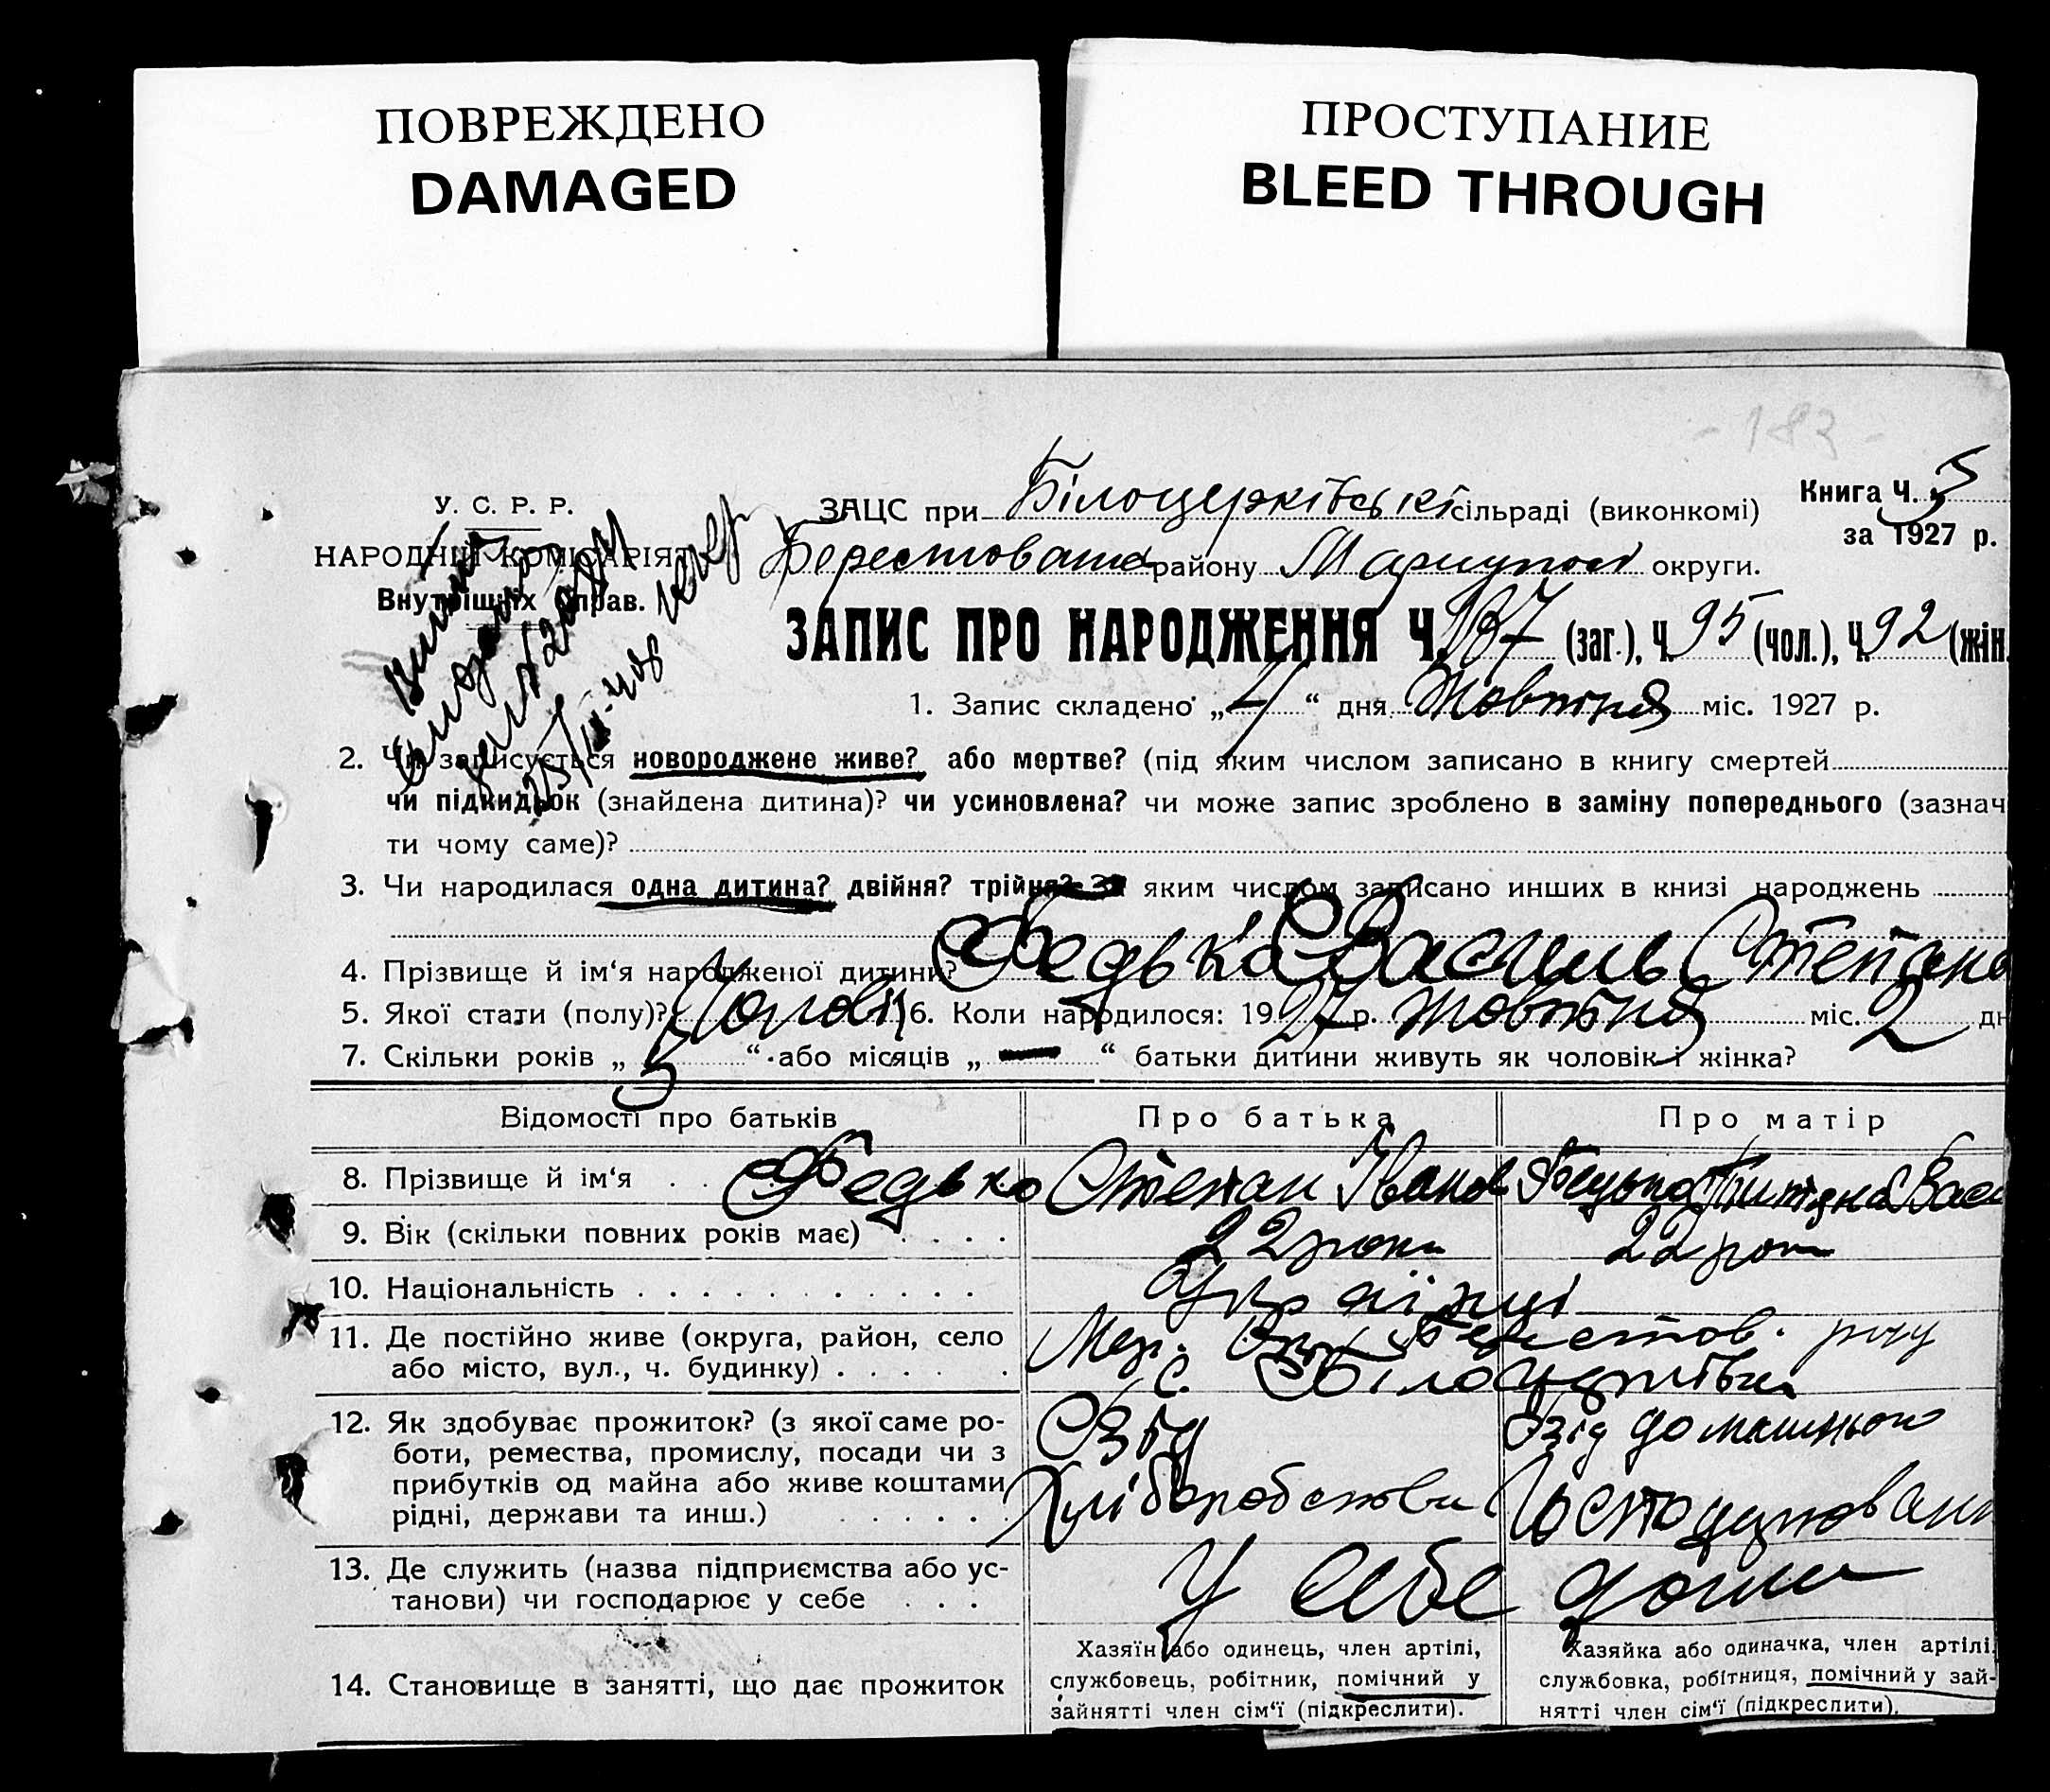 ПОВРЕЖДЕНО
DAMAGED
ПРОСТУПАНИЕ
BLEED THROUGH
- 183 -
У. С. Р. Р.
НАРОДНІЙ КОМІСАРІЯТ
Внутрішніх Справ.
Книга Ч. 5
за 1927 р.
ЗАЦС при Білоцерківські сільраді (виконкомі)
Берестоваť району Маріупол округи.
ЗАПИС ПРО НАРОДЖЕННЯ Ч. 187 (заг.), Ч. 95 (чол.), Ч. 92 (жін.
1. Запис складено „4“ дня Жовтня міс. 1927 р.
2. Чи записується новороджене живе? або мертве? (під яким числом записано в книгу смертей
чи підкидьок (знайдена дитина)? чи усиновлена? чи може запис зроблено в заміну попереднього (зазнач
ти чому саме)?
3. Чи народилася одна дитина? двійня? трійня? За яким числом записано инших в книзі народжень
4. Прізвище й ім‘я народженої дитини? Федько Василь Степано
5. Якої стати (полу)? Чоловіч 6. Коли народилося: 1927 р. Жовтня міс. 2 дн
7. Скільки років „5“ або місяців „—“ батьки дитини живуть як чоловік і жінка?
Відомості про батьків Про батька Про матір
8. Прізвище й ім‘я Федько Степан Іванов
9. Вік (скільки повних років має) 22 роки 22 рок
10. Національність Українці
11. Де постійно живе (округа, район, село Мар. Окр. Берестов. рну
або місто, вул., ч. будинку) с. Білоцерківка
12. Як здобуває прожиток? (з якої саме ро-
боти, ремества, промислу, посади чи з
прибутків од майна або живе коштами
рідні, держави та инш.)
Від
Хліборобства
Від домашнього
Господарован
13. Де служить (назва підприємства або ус-
танови) чи господарює у себе
У себе дома
14. Становище в занятті, що дає прожиток
Хазяїн або одинець, член артілі,
службовець, робітник, помічний у
зайнятті член сім‘ї (підкреслити).
Хазяйка або одиначка, член артілі,
службовка, робітниця, помічний у зай-
нятті член сім‘ї (підкреслити).